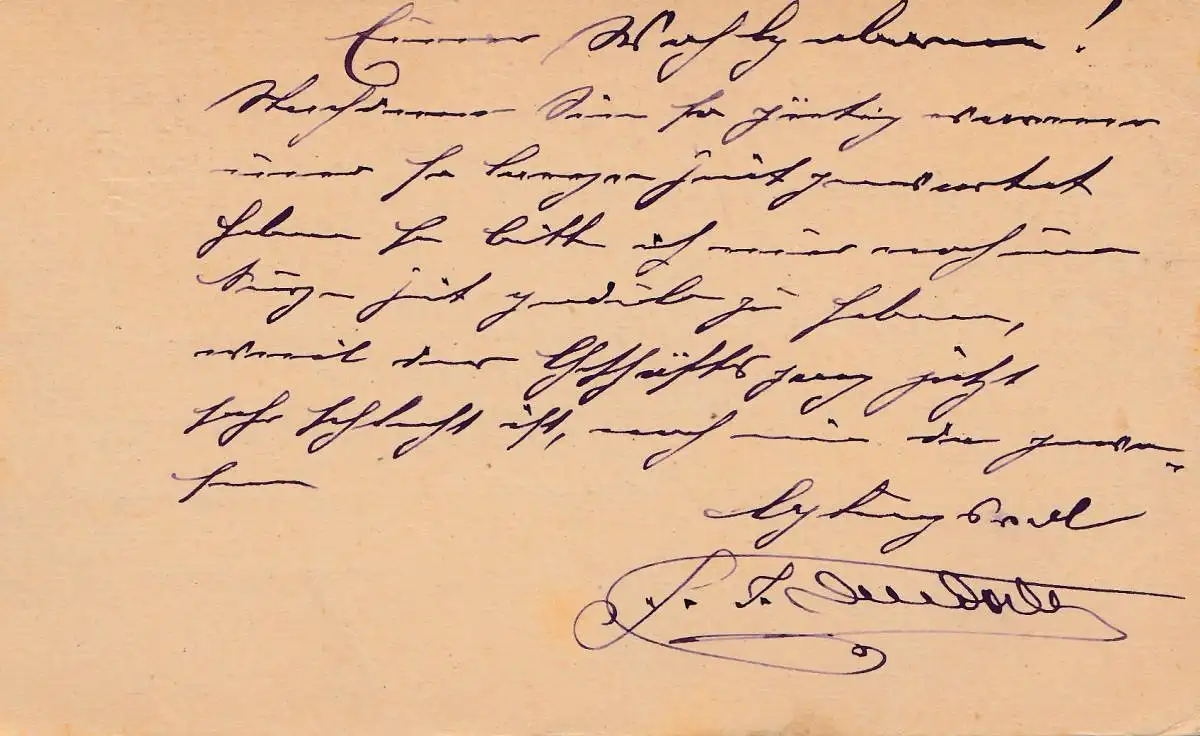 Euer Wohlgeboren!
Nachdem Sie so gütig waren
und so lange Zeit gewartet
haben so bitte ich nur noch um
kurze Zeit geduld zu haben,
weil der Geschäftsgang jetzt
sehr schlecht ist, noch nie da gewe-
sen
Achtungsvoll